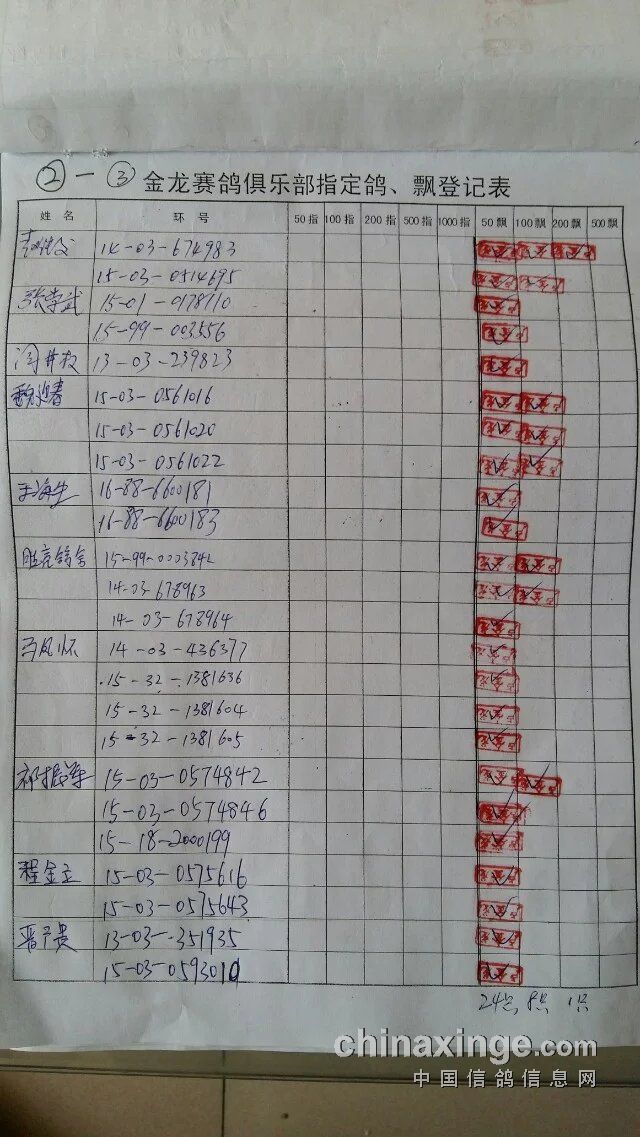 ②一③ 金龙赛鸽俱乐部指定鸽、飘登记表
姓名 环号 50指 100指 200指 500指 1000指 50飘 100飘 200飘 500飘
14-03-674983
15-03-0514695
15-01-0178710
15-99-003556
13-03-239823
魏迎春 15-03-0561016
15-03-0561020
15-03-0561022
王海生 16-88-6600181
16-88-6600183
15-99-0003842
14-03-678963
14-03-678964
马凤怀 14-03-436377
15-32-1381636
15-32-1381604
15-32-1381605
祁振军 15-03-0574842
15-03-0574846
15-18-2000199
程金立 15-03-0575616
15-03-0575643
13-03-351935
15-03-0593010
24只 8只 1只
chinaxinge.com
中国信鸽信息网